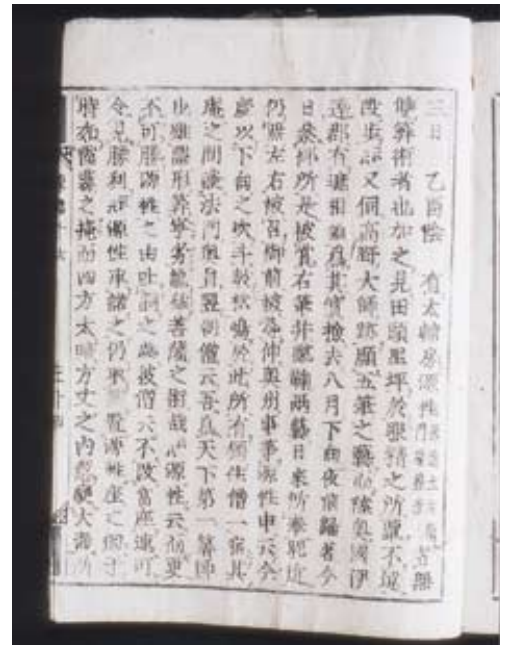 三日 乙酉陰 有大輔房源性 無
雙算術者也加之見田頭里坪於眼精之所覃不違
段歩云々又伺高野大師跡顯五筆之藝而陸奧國伊
達郡有境相論爲其實檢去八月下向夜前歸着今
日參御所是被賞右筆幷蹴鞠兩藝日來所奉昵近
仍無左右被召御前被尋仰奥州事等源性申云今
度以下向之次斗藪松嶋於此所有獨住僧一宿其
庵之間談法門奥旨翌朝僧云吾爲天下第一算師
也雖 形算 龍猛菩薩之術 源性云 更
不可勝源性之由吐詞之處彼僧云不改當座速可
令見勝利云々源性承諾之仍取算置源性座之 于
時如霞霧之掩而四方太暗方丈之内忽變大海所